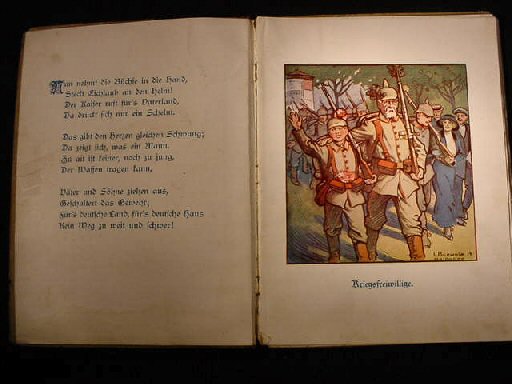 Nun nehmt die Büchse in die Hand,
Steckt Eichlaub an den Helm!
Der Kaiser ruft für's Vaterland,
Da drückt sich nur ein Schelm.
Das gibt den Herzen gleichen Schwung;
Da zeigt sich, was ein Mann.
Zu alt ist keiner, noch zu jung,
Der Waffen tragen kann.
Väter und Söhne ziehen aus,
Geschultert das Gewehr;
Für's deutsche Land, für's deutsche Haus
Kein Weg zu weit und schwer!
Kriegsfreiwillige.